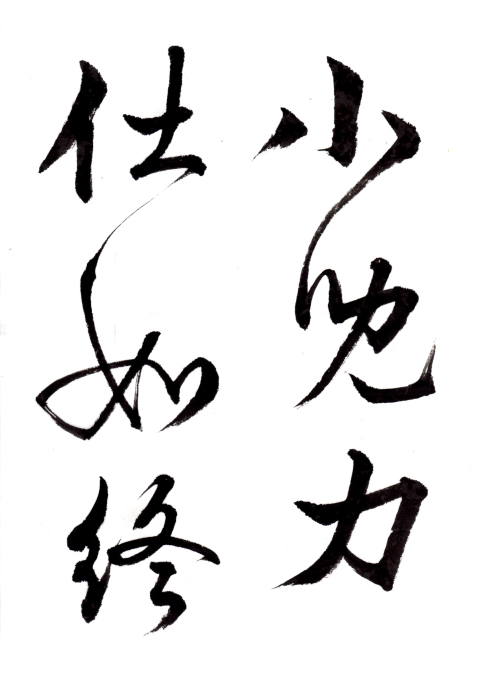 小兒力
仕如終